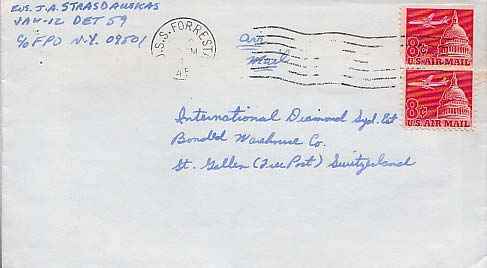 ENS. J.A. STRASDAUSKAS
VAW-12 DET 59
c/o FPO N.Y. 09501
U.S.S. FORREST
M
45
air
mail
8¢
U.S. AIR MAIL
8¢
U.S. AIR MAIL
International Diamond Synd. Est
Bonded Warehouse Co.
St. Gallen (Free Port) Switzerland